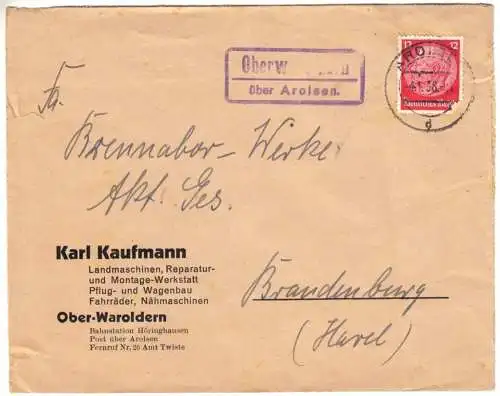 Oberw
über Arolsen.
12 12
Deutsches Reich
d
Fa.
Brennabor-Werke
Akt. Ges.
Karl Kaufmann
Landmaschinen, Reparatur-
und Montage-Werkstatt
Pflug- und Wagenbau
Fahrräder, Nähmaschinen
Ober-Waroldern
Bahnstation Höringhausen
Post über Arolsen
Fernruf Nr. 26 Amt Twiste
Brandenburg
(Havel)